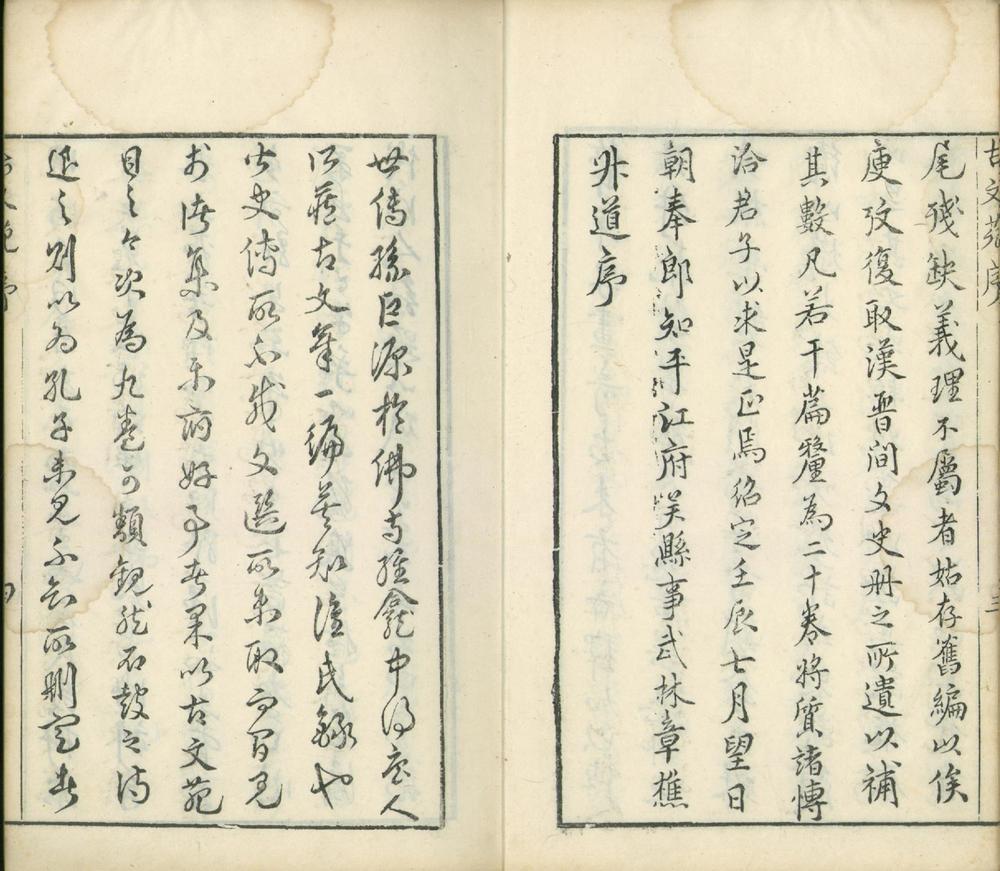 古文苑序
三
尾殘缺義理不屬者姑存舊編以俟
廋攷復取漢晉間文史冊之所遺以補
其數凡若干篇釐為二十卷將質諸愽
洽君子以求是正焉紹定壬辰七月望日
朝奉郎知平江府吴縣事武林章樵
升道序
世傳孫巨源於佛寺經龕中得唐人
所藏古文章一編莫知誰氏錄也
皆史傳所不載文選所未取而間見
於諸集及樂府好事者果以古文苑
目之今次為九卷可類觀然石鼓之詩
退之則以為孔子未見不知所刪定者